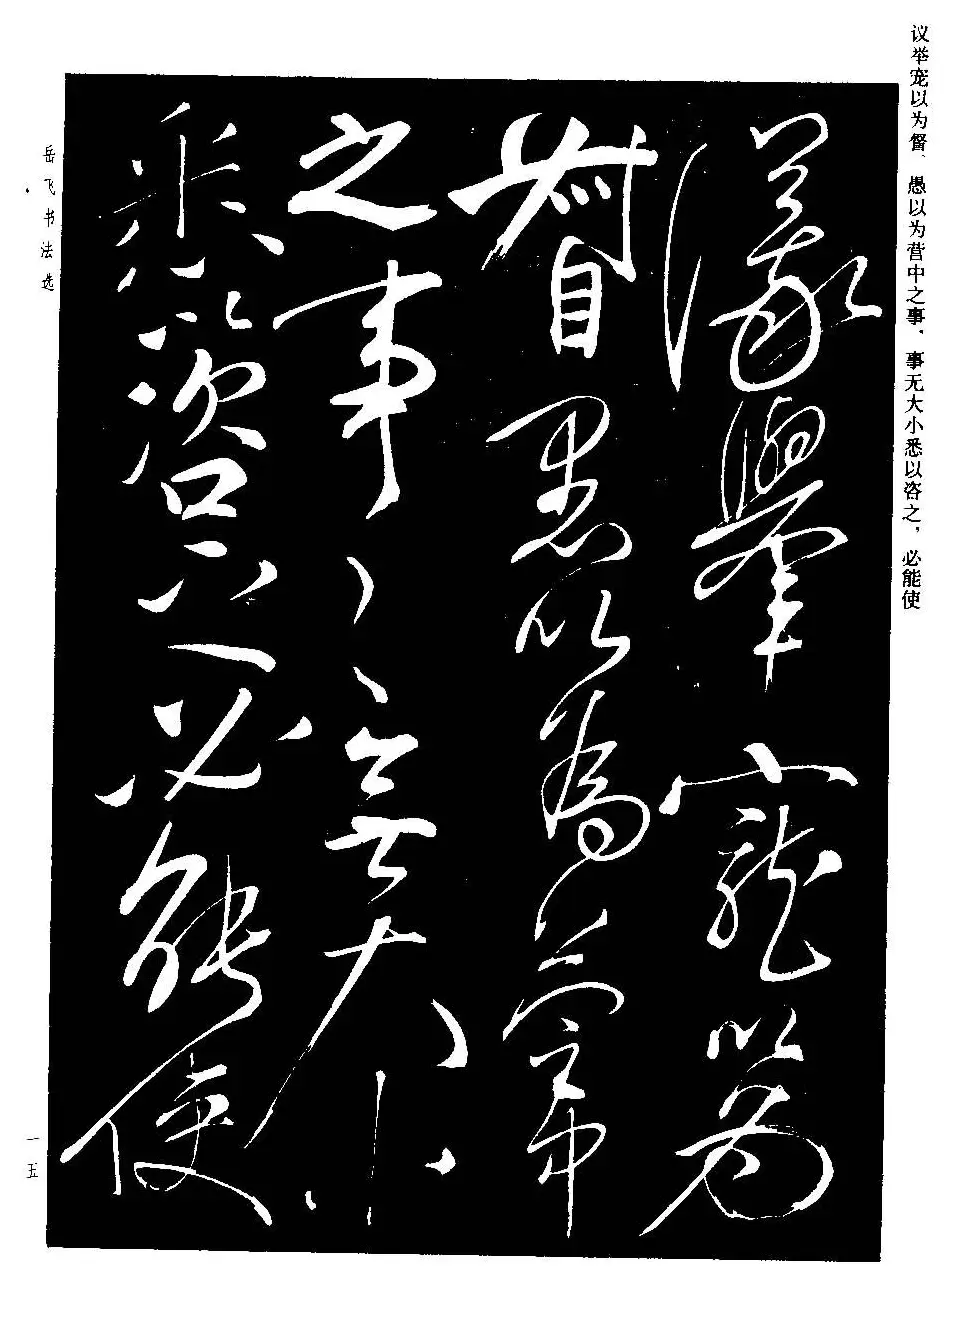 议举宠以为督、愚以为营中之事，事无大小悉以咨之，必能使
議舉寵以為
督愚以為營中
之事〻無大小
悉以咨之必能使
岳飞书法选
一五